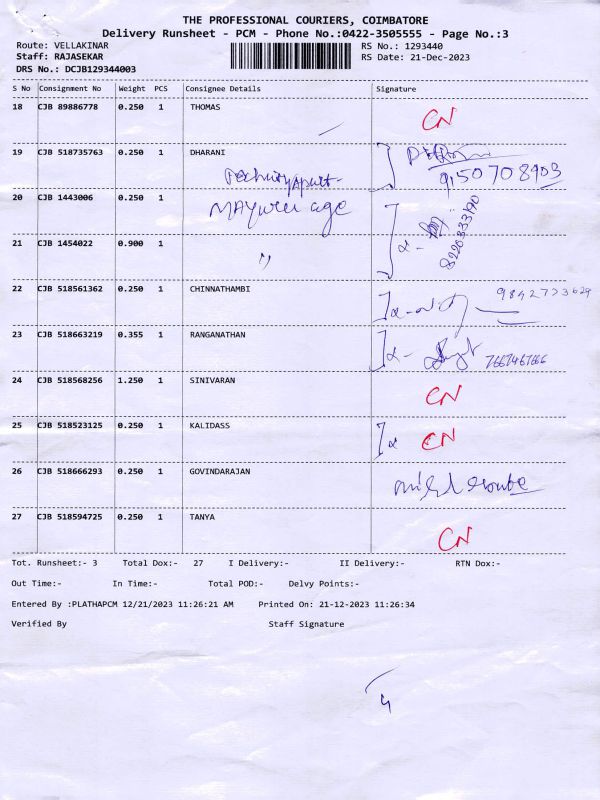 THE PROFESSIONAL COURIERS, COIMBATORE
Delivery Runsheet - PCM - Phone No.:0422-3505555 - Page No.:3
Route: VELLAKINAR RS No.: 1293440
Staff: RAJASEKAR RS Date: 21-Dec-2023
DRS No.: DCJB129344003
S No Consignment No Weight PCS Consignee Details Signature
18 CJB 89886778 0.250 1 THOMAS CN
19 CJB 518735763 0.250 1 DHARANI
9150708903
20 CJB 1443006 0.250 1 MAYURU age
8220833190
21 CJB 1454022 0.900 1 "
22 CJB 518561362 0.250 1 CHINNATHAMBI
23 CJB 518663219 0.355 1 RANGANATHAN
24 CJB 518568256 1.250 1 SINIVARAN CN
25 CJB 518523125 0.250 1 KALIDASS CN
26 CJB 518666293 0.250 1 GOVINDARAJAN
27 CJB 518594725 0.250 1 TANYA CN
Tot. Runsheet:- 3 Total Dox:- 27 I Delivery:- II Delivery:- RTN Dox:-
Out Time:- In Time:- Total POD:- Delvy Points:-
Entered By :PLATHAPCM 12/21/2023 11:26:21 AM Printed On: 21-12-2023 11:26:34
Verified By Staff Signature